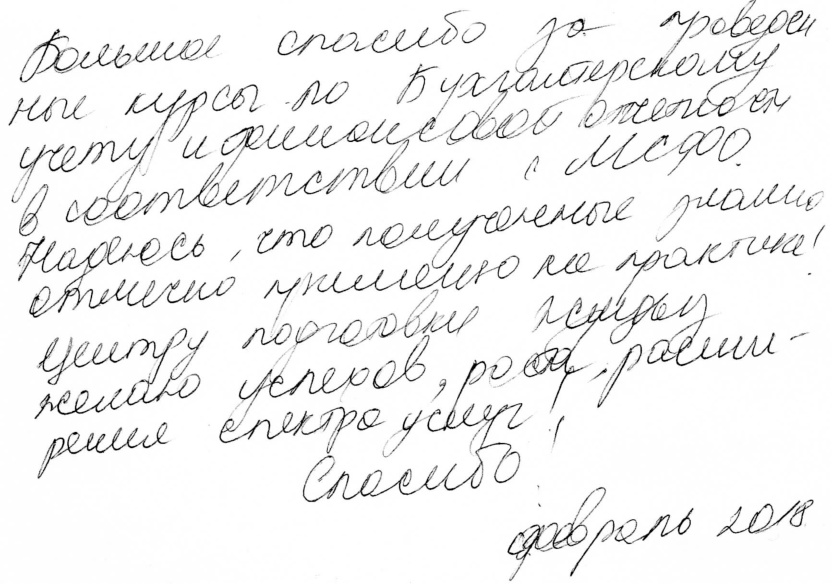 Большое спасибо за проведен
ные курсы по Бухгалтерскому
учету и финансовой отчетности
в соответствии с МСФО.
Надеюсь, что полученные знания
отлично применю на практике!
Центру подготовки
желаю успехов, роста, расши-
рения спектра услуг!
Спасибо!
февраль 2018